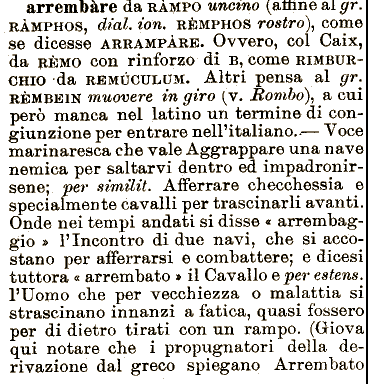 arrembàre da RÀMPO uncino (affine al gr.
RÀMPHOS, dial. ion. RÈMPHOS rostro), come
se dicesse ARRAMPÀRE. Ovvero, col Caix,
da RÈMO con rinforzo di B, come RIMBUR-
CHIO da REMÚCULUM. Altri pensa al gr.
RÈMBEIN muovere in giro (v. Rombo), a cui
però manca nel latino un termine di con-
giunzione per entrare nell'italiano.— Voce
marinaresca che vale Aggrappare una nave
nemica per saltarvi dentro ed impadronir-
sene; per similit. Afferrare checchessia e
specialmente cavalli per trascinarli avanti.
Onde nei tempi andati si disse « arrembag-
gio » l'Incontro di due navi, che si acco-
stano per afferrarsi e combattere; e dicesi
tuttora « arrembato » il Cavallo e per estens.
l'Uomo che per vecchiezza o malattia si
strascinano innanzi a fatica, quasi fossero
per di dietro tirati con un rampo. (Giova
qui notare che i propugnatori della de-
rivazione dal greco spiegano Arrembato